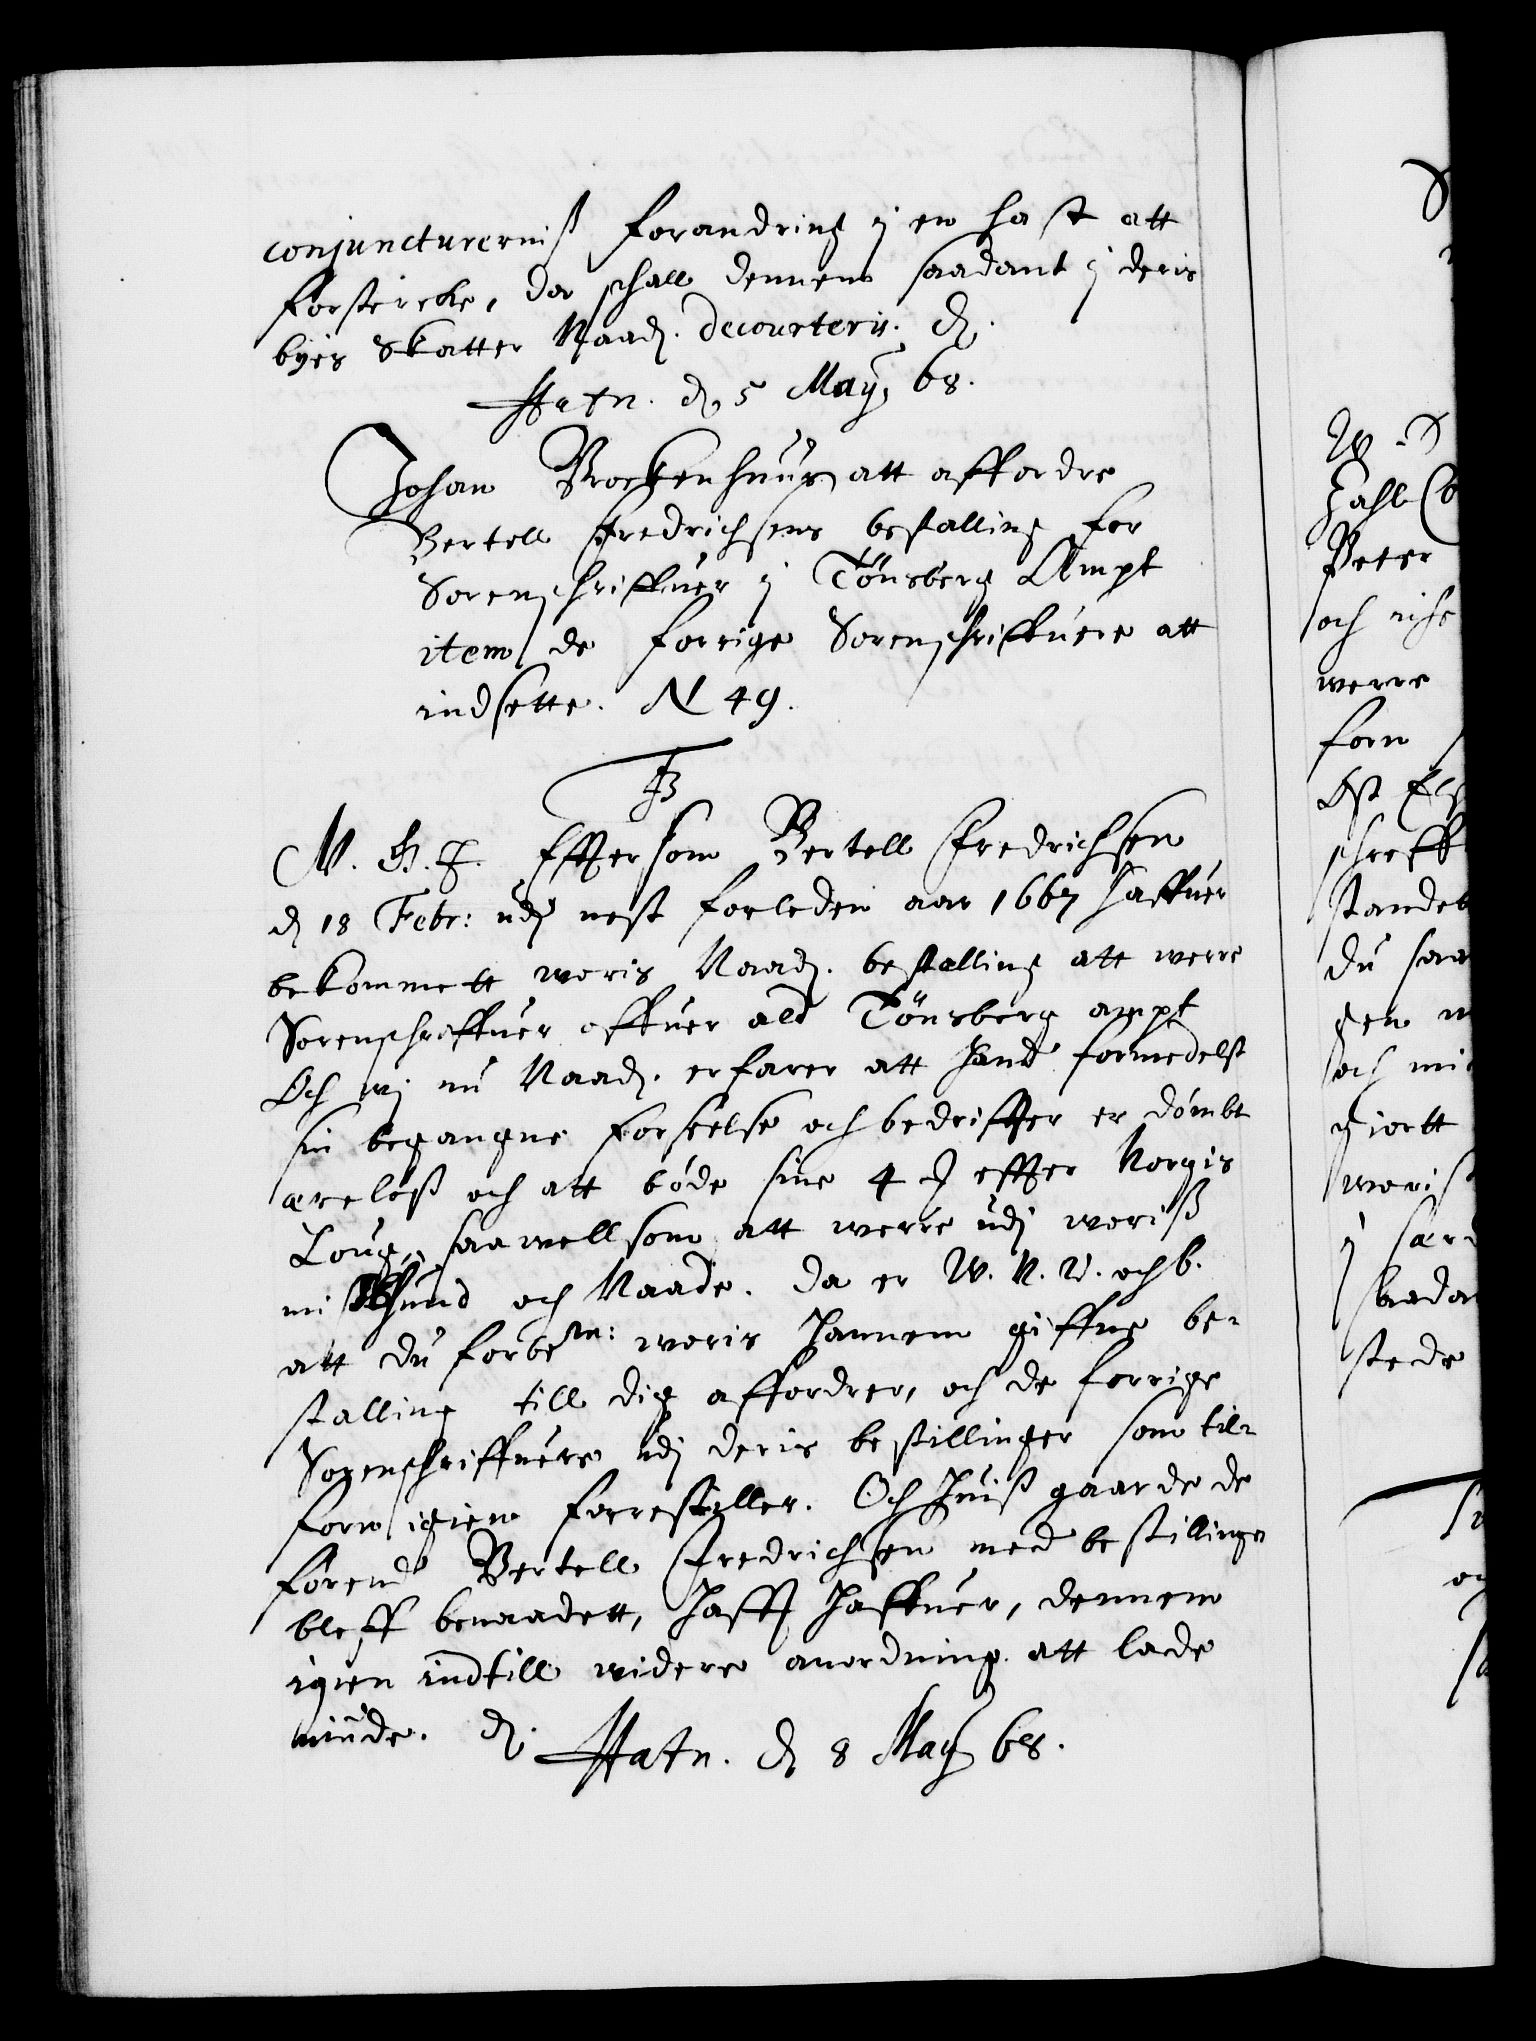 conjuncturerniß forandring j en hast att
forstercke, da schall dennem saadant j deris
byes Skatter Naad. decourteris. d.
Hafn. d. 5 May. 68.
Johan Brockenhuus att affordre
Bertell Fredrichsens bestalling for
Sorenschriffuer j Tönsberg Ampt
item de forrige Sorenschriffuere att
indsette. N 49.
F3
W. G. T. Efftersom Bertell Fredrichsen
d 18 Febr: udj nest forleden aar 1667 haffuer
bekommett woris Naad. bestalling att werre
Sorenschreffuer offuer ald Tönsberg ampt
Och wj nu Naad. erfarer att hand formedelst
sin begangne forseelse och bedriffter er dömbt
æreløß och att bøde sine 4 effter Norgis
Loug, saawellsom att werre udj woriß
mischund och Naade. Da er W. N. V. och b.
att du forbe^te: woris hannem giffne be-
stalling till dig affordrer, och de forrige
Sorenschriffuere udj deris bestillinger som til-
forn igien forrestiller. Och huiß gaarde de
førend Bertell Fredrichsen med bestillingen
bleff benaadett, hafft haffuer, dennem
igien indtill widere anordning att lade
niude. d.
Hafn. d 8 May 68.
Peter
och
werre
forn
standeb
du saa
gen
och
giortt
woris
j
saada
stede